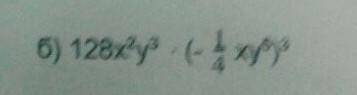 б) 128x²y³ · (- 1/4 xy⁵)³